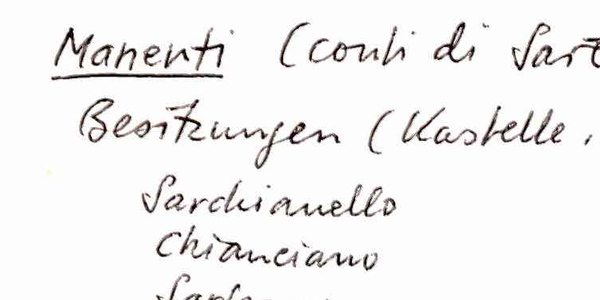 Manenti (conti di Sart
Besitzungen (Kastelle,
Sarchianello
Chianciano